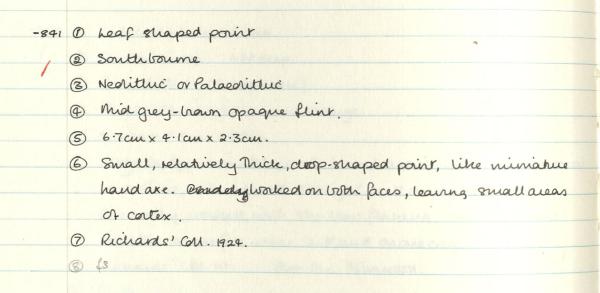 -841 ① Leaf shaped point
② Southbourne
③ Neolithic or Palaeolithic
④ Mid grey-brown opaque flint.
⑤ 6.7cm x 4.1cm x 2.3cm.
⑥ Small, relatively thick, drop-shaped point, like miniature
hand axe. worked on both faces, leaving small areas
of cortex.
⑦ Richards' Coll. 1924.
⑧ f3